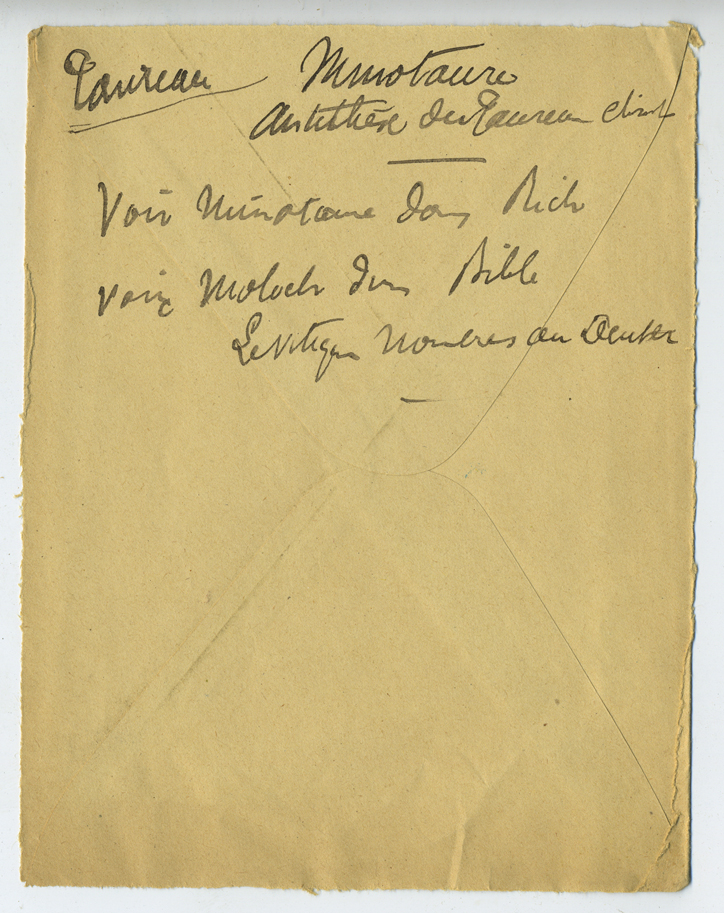 Taureau Minotaure
Antithèse du Taureau christ
Voir Minotaure dans Rich
voir Moloch dans Bible
Levitique Nombres ou Deuter